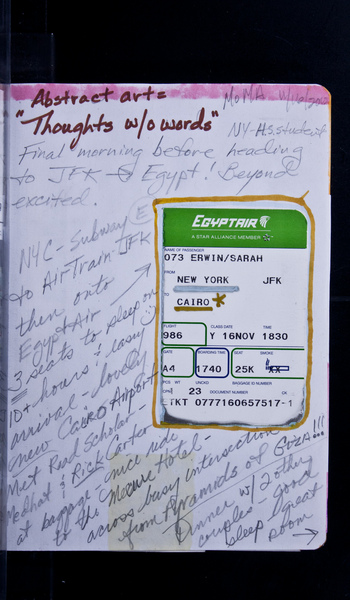 Abstract art =
"Thoughts w/o words"
MoMA
NY-H.S. student
Final morning before heading
to JFK → Egypt! Beyond
excited.
NYC - Subway E
to AirTrain JFK
then onto
EgyptAir
3 seats to sleep on
10+ hours & easy
arrival - lovely
new Cairo Airport
Met Road Scholar
Medhat & Rick Carter
at baggage - nice ride
to the Mecure Hotel -
across busy intersection
from Pyramids of GIZA!!!
Dinner w/ 2 other
couples - good
sleep great
room →
EGYPTAIR
A STAR ALLIANCE MEMBER
NAME OF PASSENGER
073 ERWIN/SARAH
FROM
NEW YORK JFK
TO
CAIRO
FLIGHT CLASS DATE TIME
986 Y 16NOV 1830
GATE BOARDING TIME SEAT SMOKE
A4 1740 25K
PCS WT UNCKD BAGGAGE ID NUMBER
23 DOCUMENT NUMBER CK
ETKT 0777160657517-1